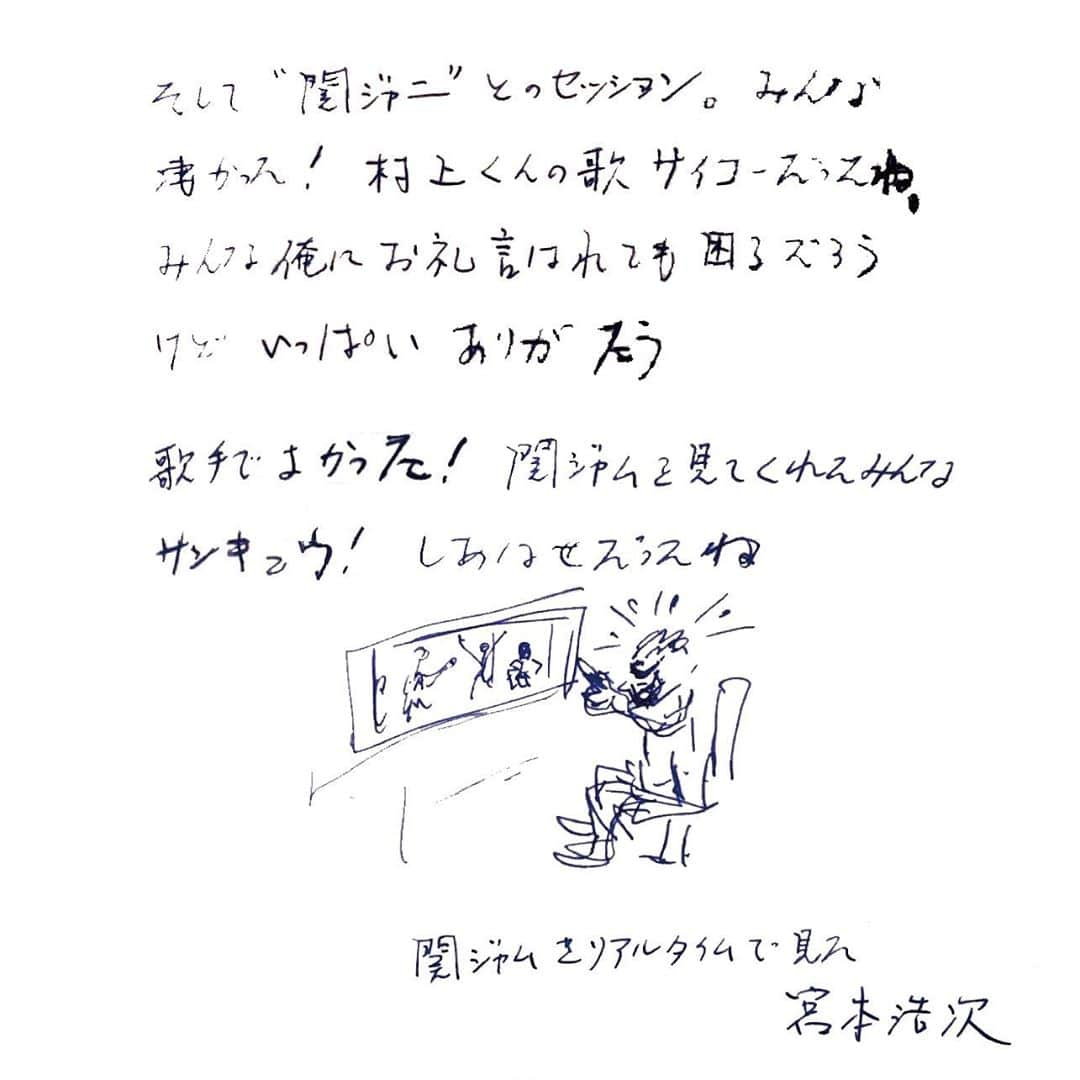 そして"関ジャニ"とのセッション。みんな
凄かった！ 村上くんの歌 サイコーだったね、
みんな俺に お礼言はれても 困るだろう
けど いっぱい ありがとう
歌手でよかった！ 関ジャムを見てくれたみんな
サンキュウ！ しあはせだったね
関ジャムをリアルタイムで見た
宮本浩次